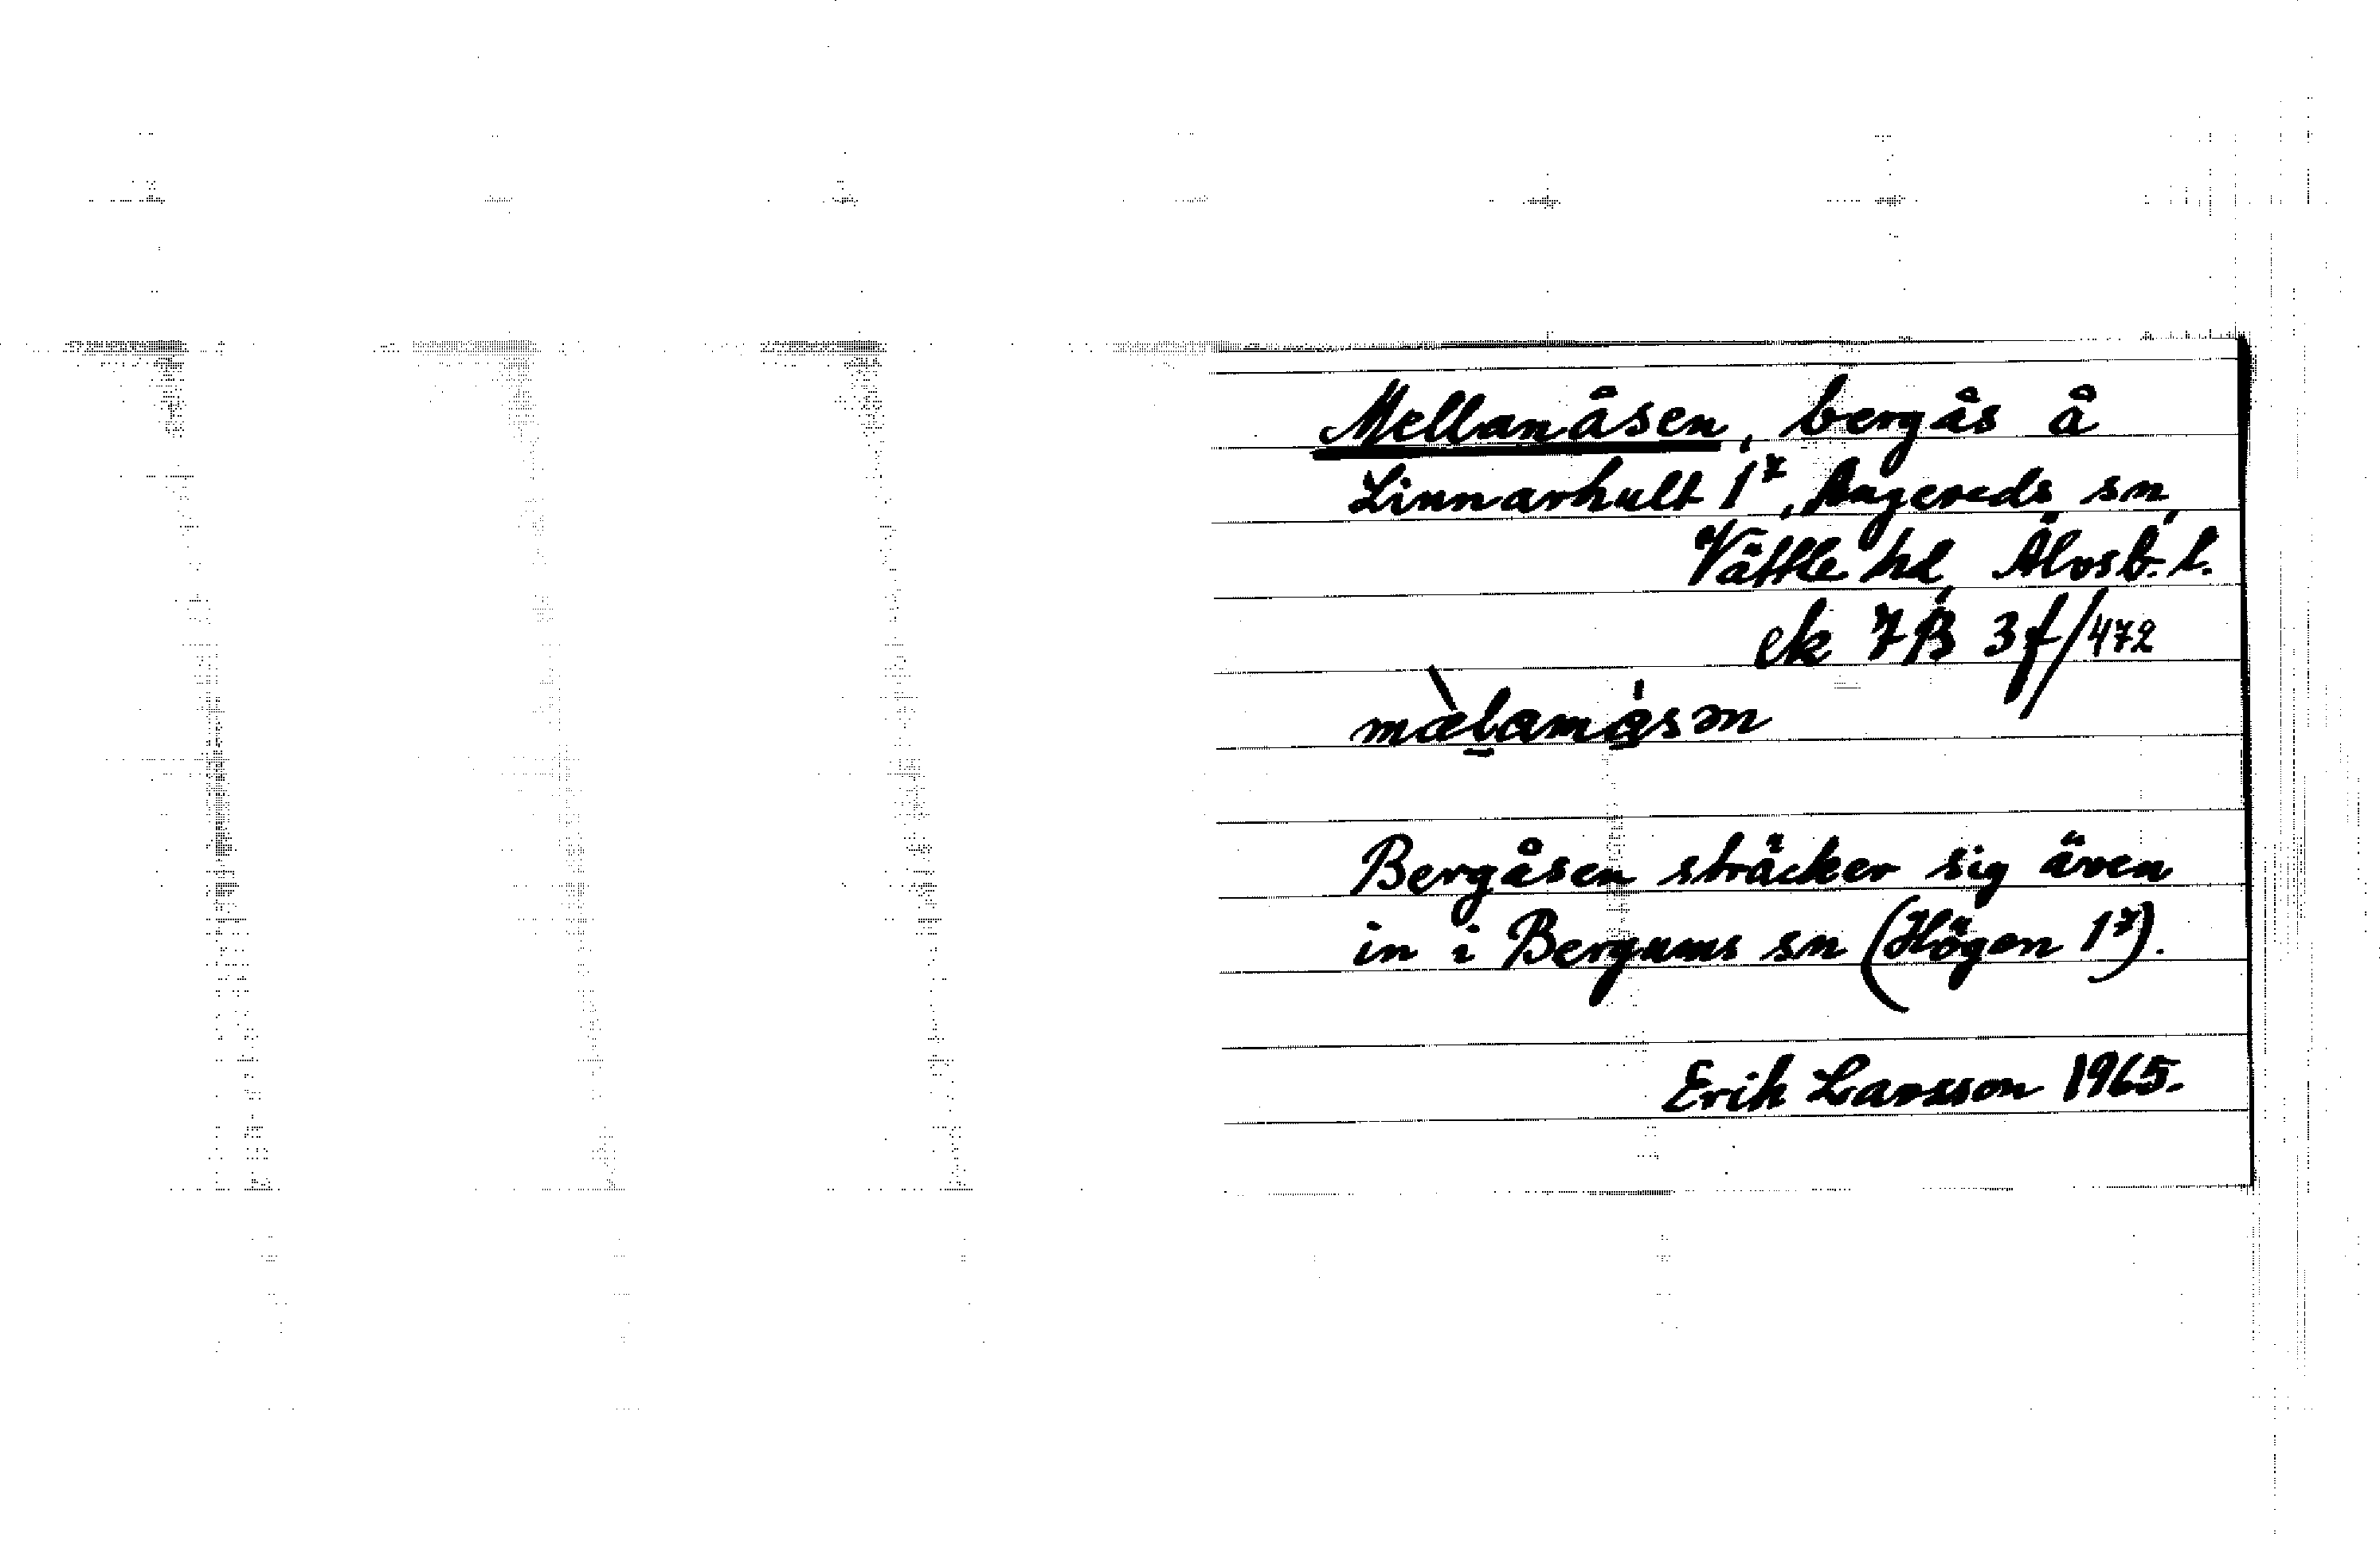 Mellanåsen, bergås å
Linnarhult 1⁷, Angereds sn,
Vättle hd, Älvsb. l.
ek 7B 3f/472
mæ̀lamåsən
Bergåsen sträcker sig även
in i Bergums sn (Högen 1⁷).
Erik Larsson 1965.